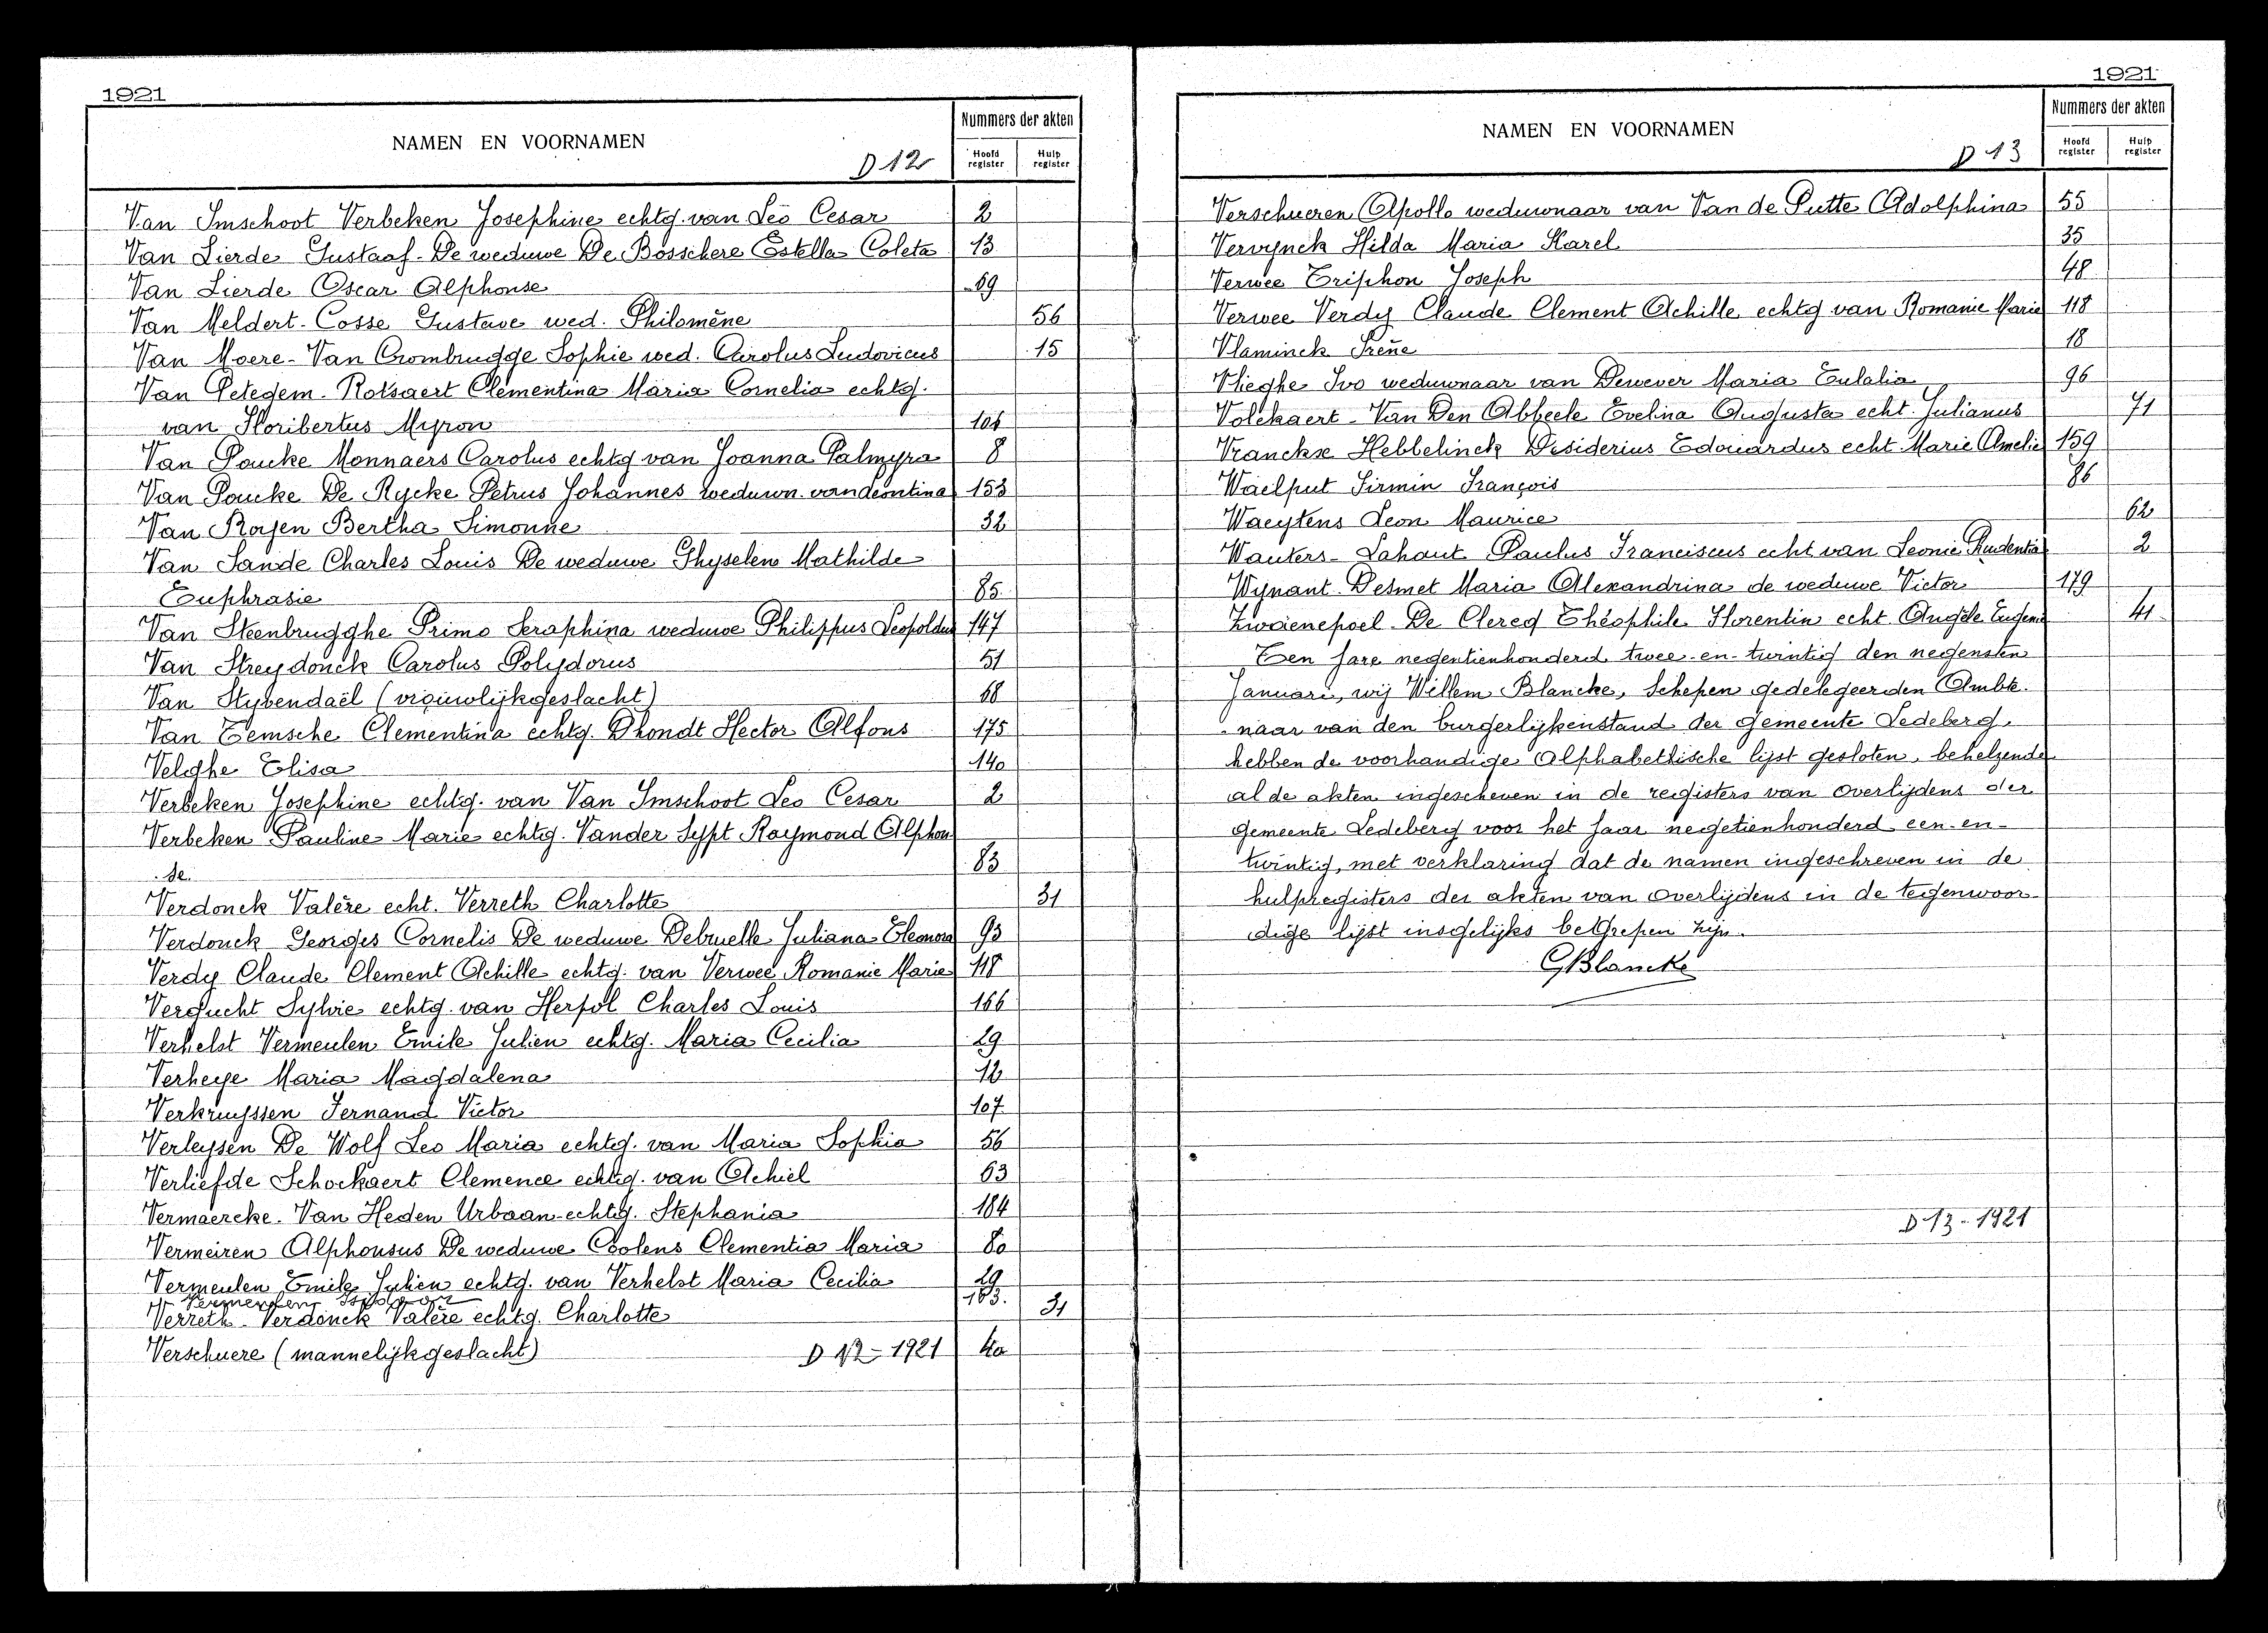 1921
NAMEN EN VOORNAMEN
D 12
Nummers der akten
Hoofd register
Hulp register
Van Imschoot Verbeken Josephine echtg. van Leo Cesar 2
Van Lierde Gustaaf - De weduwe De Bosschere Estella Coleta 13
Van Lierde Oscar Alphonse 69
Van Meldert - Cosse Gustave wed. Philomène 56
Van Moere - Van Crombrugge Sophie wed. Carolus Ludovicus 15
Van Petegem - Rotsaert Clementina Maria Cornelia echtg.
van Floribertus Myron 106
Van Poucke Monnaers Carolus echtg van Joanna Palmyra 8
Van Poucke De Rycke Petrus Johannes weduwn. van Leontina 153
Van Royen Bertha Simonne 32
Van Sande Charles Louis De weduwe Ghyselen Mathilde
Euphrasie 85
Van Steenbrugghe Primo Seraphina weduwe Philippus Leopoldus 147
Van Streydonck Carolus Polydorus 51
Van Stybendaël (vrouwlijkgeslacht) 68
Van Temsche Clementina echtg. Dhondt Hector Alfons 175
Velghe Elisa 140
Verbeken Josephine echtg. van Van Imschoot Leo Cesar 2
Verbeken Pauline Marie echtg. Vander Sypt Raymond Alphon
se. 83
Verdonck Valère echt. Verreth Charlotte 31
Verdonck Georges Cornelis De weduwe Debruelle Juliana Eleonora 93
Verdy Claude Clement Achille echtg. van Verwee Romanie Marie 118
Vergucht Sylvie echtg. van Herpol Charles Louis 166
Verhelst Vermeulen Emile Julien echtg. Maria Cecilia 29
Verheye Maria Magdalena 12
Verkruyssen Fernand Victor 107
Verleysen De Wolf Leo Maria echtg. van Maria Sophia 56
Verliefde Schockaert Clemence echtg. van Achiel 63
Vermaercke - Van Heden Urbaan echtg. Stephania 184
Vermeiren Alphonsus De weduwe Coolens Clementia Maria 80
Vermeulen Emile Julien echtg. van Verhelst Maria Cecilia 29
Vermeulen 183.
Verreth - Verdonck Valère echtg. Charlotte 31
Verschuere (mannelijkgeslacht) D 12 - 1921 40
1921
NAMEN EN VOORNAMEN
D 13
Nummers der akten
Hoofd register
Hulp register
Verschueren Apollo weduwnaar van Van de Putte Adolphina 55
Vervynck Hilda Maria Karel 35
Verwee Triphon Joseph 48
Verwee Verdy Claude Clement Achille echtg van Romanie Marie 118
Vlaminck Irene 18
Vlieghe Ivo weduwnaar van Dewever Maria Eulalia 96
Volckaert - Van Den Abbeele Evelina Augusta echt. Julianus 71
Vranckx Hebbelinck Desiderius Edouardus echt. Marie Amelie 159
Waelput Firmin François 86
Waeytens Leon Maurice 62
Wauters - Lahaut Paulus Franciscus echt van Leonie Prudentia 2
Wynant - Desmet Maria Alexandrina de weduwe Victor 179
Zwaenepoel - De Clercq Théophile Florentin echt. Angèle Eugenie 41
Ten Jare negentienhonderd twee-en-twintig den negensten
Januari, wij Willem Blancke, Schepen gedelegeerden Ambte.
naar van den burgerlijkenstand der gemeente Ledeberg,
hebben de voorhandige Alphabethische lijst gesloten, behelzende
al de akten ingescheven in de registers van Overlijdens der
gemeente Ledeberg voor het jaar negetienhonderd een-en-
twintig, met verklaring dat de namen ingeschreven in de
hulpregisters der akten van Overlijdens in de tegenwoor-
dige lijst insgelijks begrepen zijn.
GBlancke
D 13 - 1921